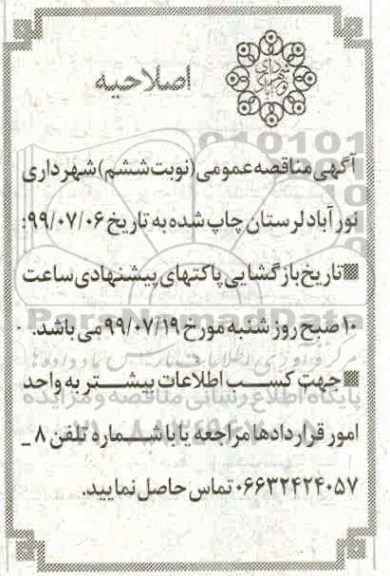 اصلاحیه
آگهی مناقصه عمومی (نوبت ششم) شهرداری
نورآباد لرستان چاپ شده به تاریخ ۹۹/۰۷/۰۶:
تاریخ بازگشایی پاکتهای پیشنهادی ساعت
۱۰ صبح روز شنبه مورخ ۹۹/۰۷/۱۹ می باشد.
ParsNamadData
جهت کسب اطلاعات بیشتر به واحد
پایگاه اطلاع رسانی مناقصه و مزایده
امور قراردادها مراجعه یا با شماره تلفن ۸ _
۰۶۶۳۲۴۲۴۰۵۷ تماس حاصل نمایید.